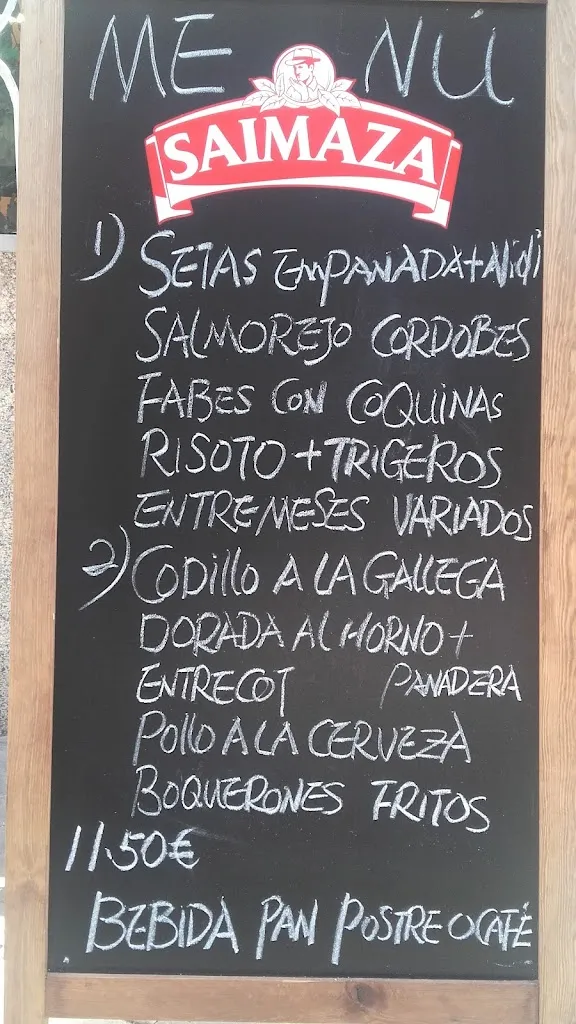 MENÚ
SAIMAZA
1) SETAS EMPANADA+Alioli
SALMOREJO CORDOBES
FABES CON COQUINAS
RISOTO+TRIGEROS
ENTREMESES VARIADOS
2) CODILLO A LA GALLEGA
DORADA AL HORNO+
ENTRECOT PANADERA
POLLO A LA CERVEZA
BOQUERONES FRITOS
11.50€
BEBIDA PAN POSTRE O CAFÉ